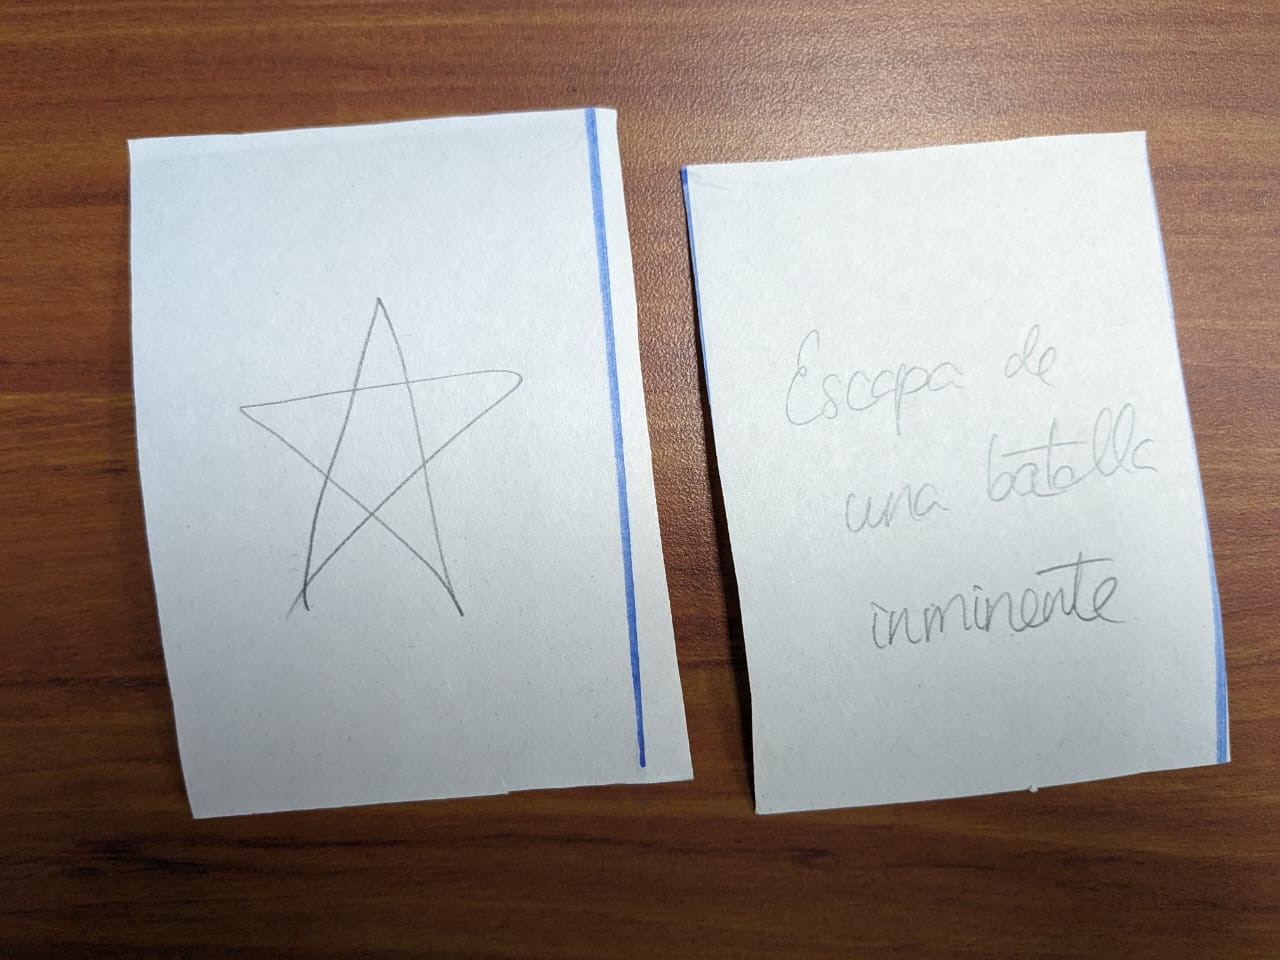 Escapa de
una batalla
inminente